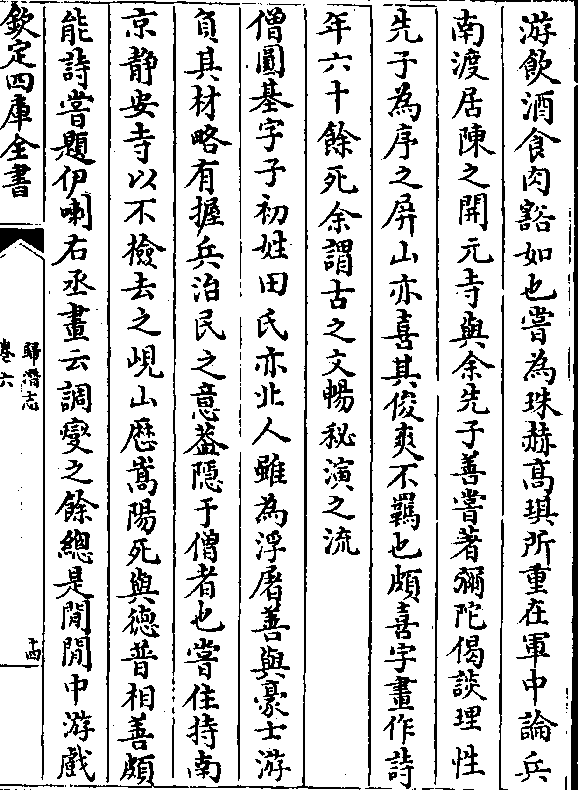 游飲酒食肉豁如也嘗為珠赫高琪所重在軍中論兵
南渡居陳之開元寺與余先子善嘗著彌陀偈談理性
先子為序之屏山亦喜其俊爽不羈也頗喜字畫作詩
年六十餘死余謂古之文暢秘演之流
僧圓基字子初姓田氏亦北人雖為浮屠善與豪士游
負其材略有握兵治民之意葢隱于僧者也嘗住持南
京静安寺以不檢去之峴山歷嵩陽死與德普相善頗
能詩嘗題伊喇右丞畫云調燮之餘總是閒閒中游戲
欽定四庫全書
歸潛志
卷六
十四